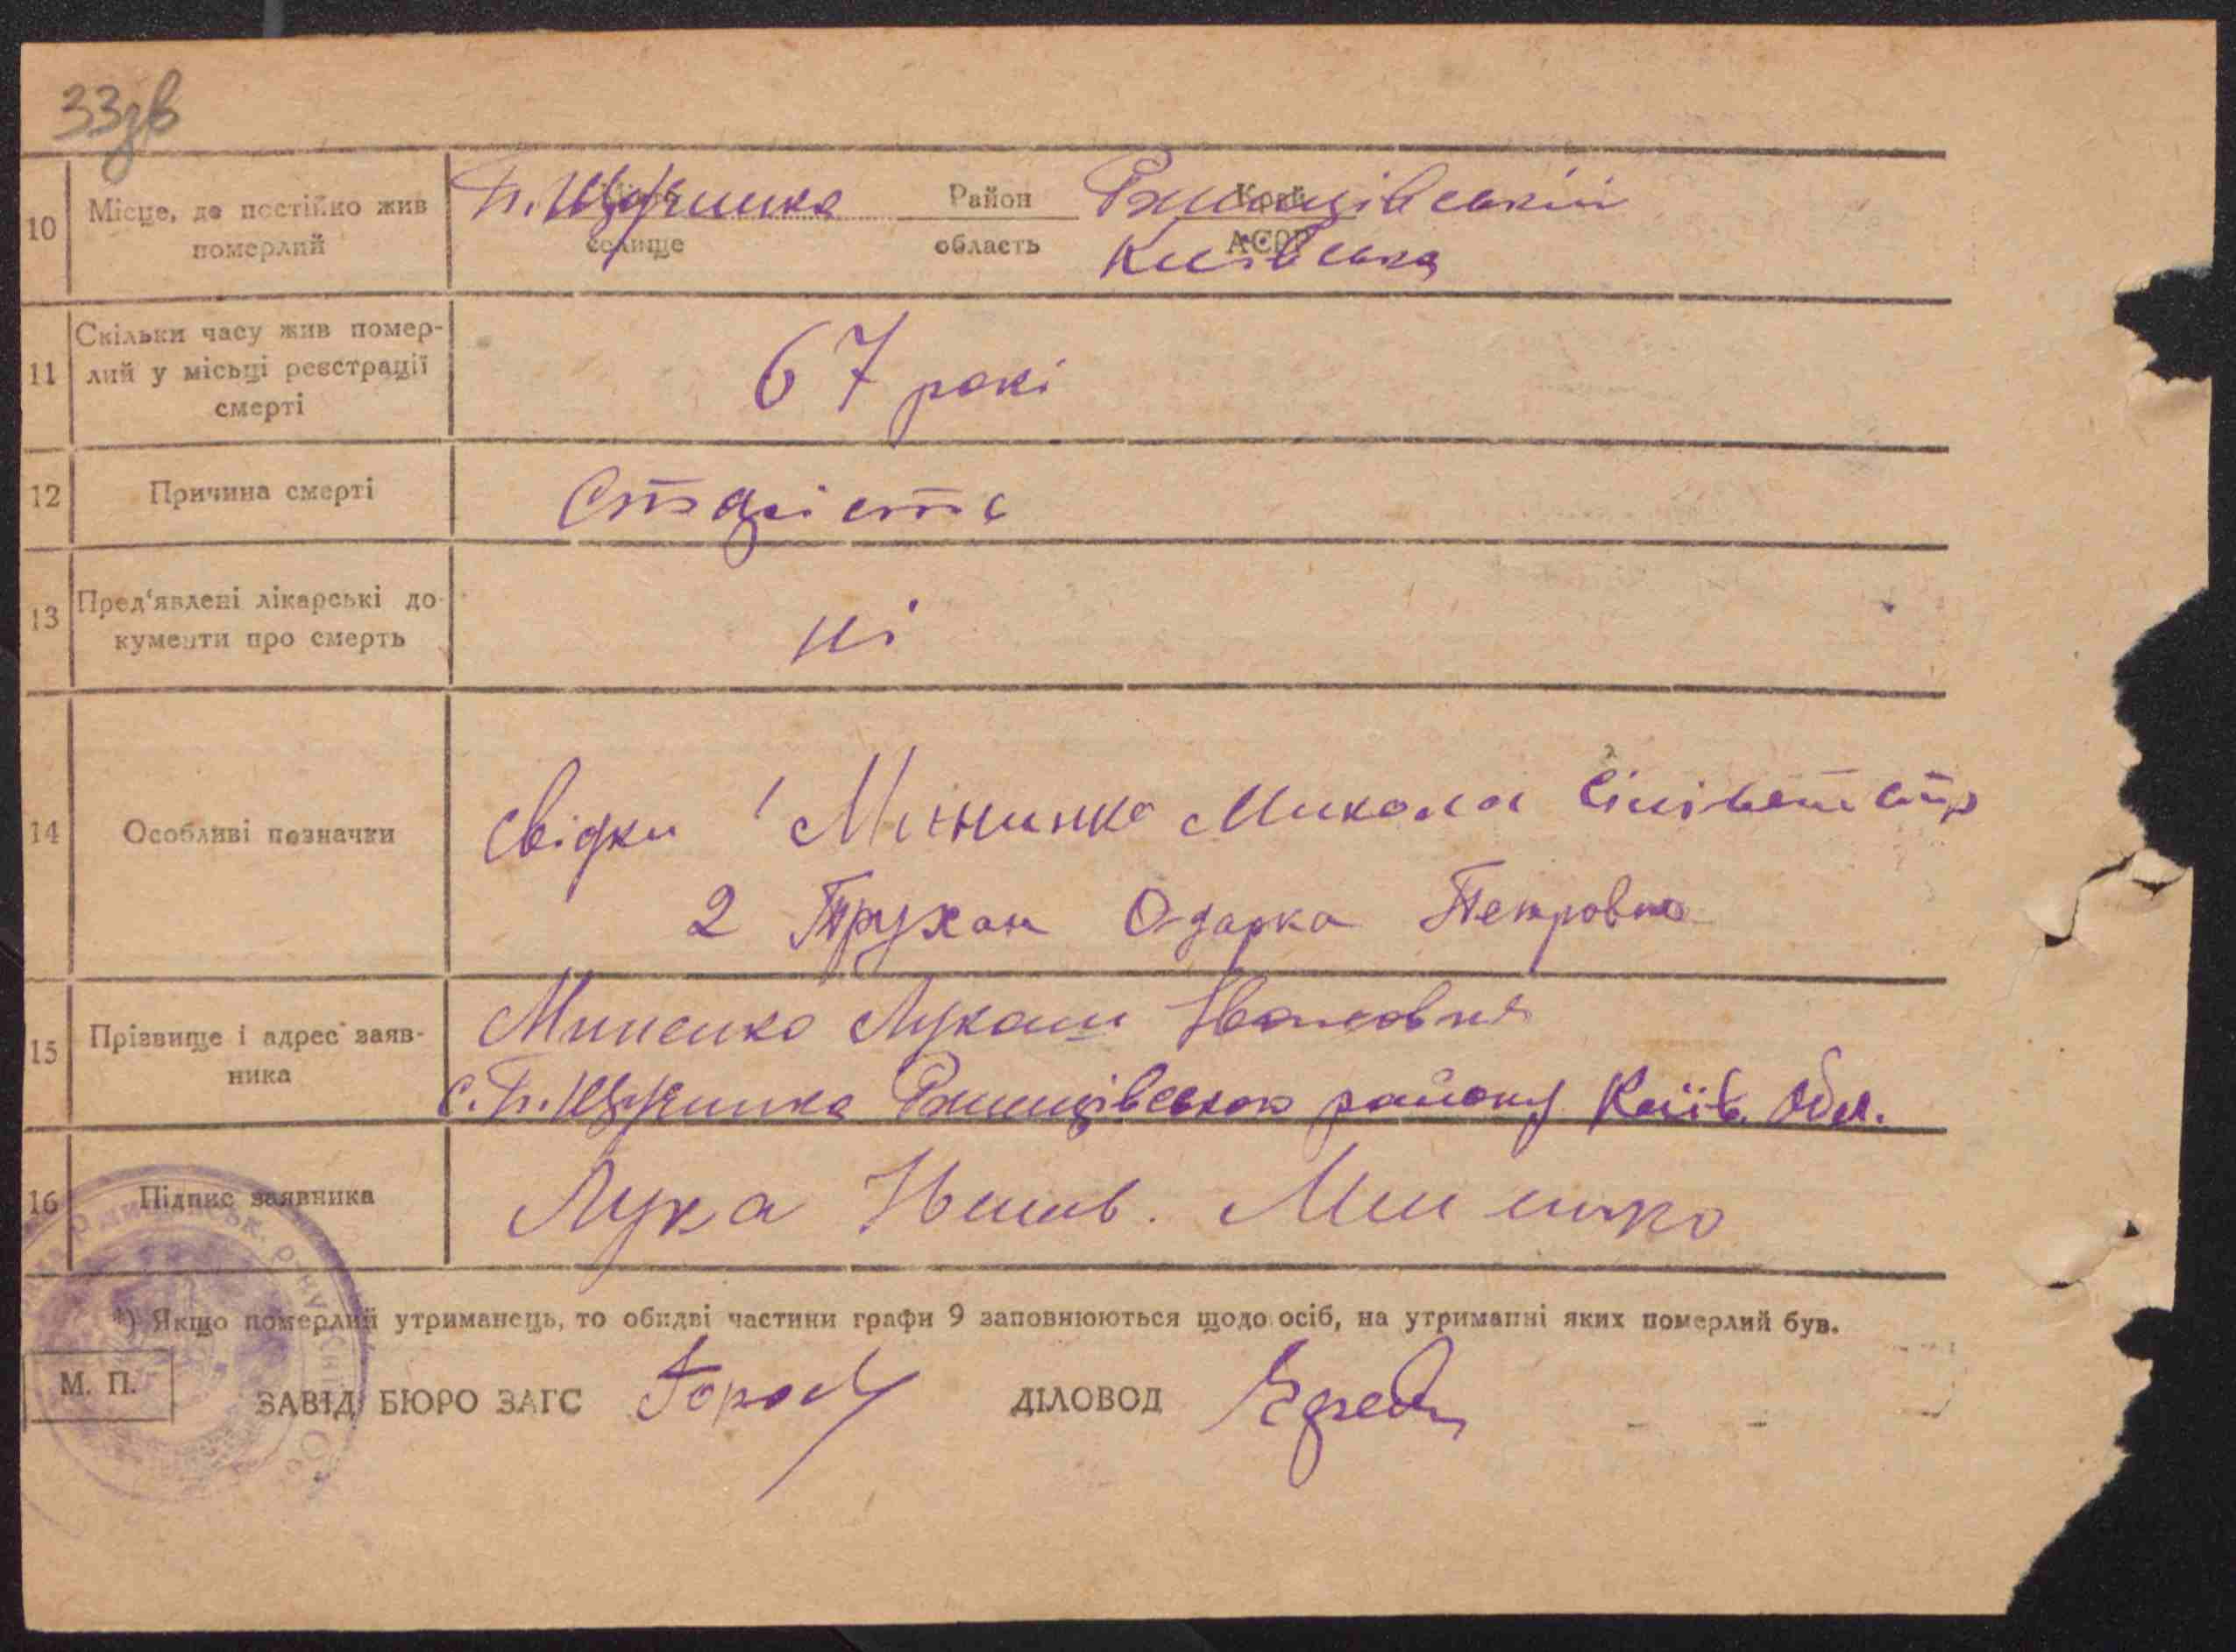 33зв
10 Місце, де постійно жив померлий П. Щучинка селище Район область Ржищівський Край АСРР Київська
11 Скільки часу жив помер-
лий у місьці реєстрації
смерті
67 рокі
12 Причина смерті Старість
13 Пред'явлені лікарські до-
кументи про смерть
ні
14 Особливі позначки свідки 1 Миненко Микола
2 Трухан Одарка Петровна
15 Прізвище і адрес заяв-
ника
Миненко Лукаш Іванович
с. П. Щучинка Ржищівського району Київ. Обл.
16 Підпис заявника Лука Миненко
*) Якщо померлий утриманець, то обидві частини графи 9 заповнюються щодо осіб, на утриманні яких померлий був.
М. П.
ЗАВІД БЮРО ЗАГС ДІЛОВОД